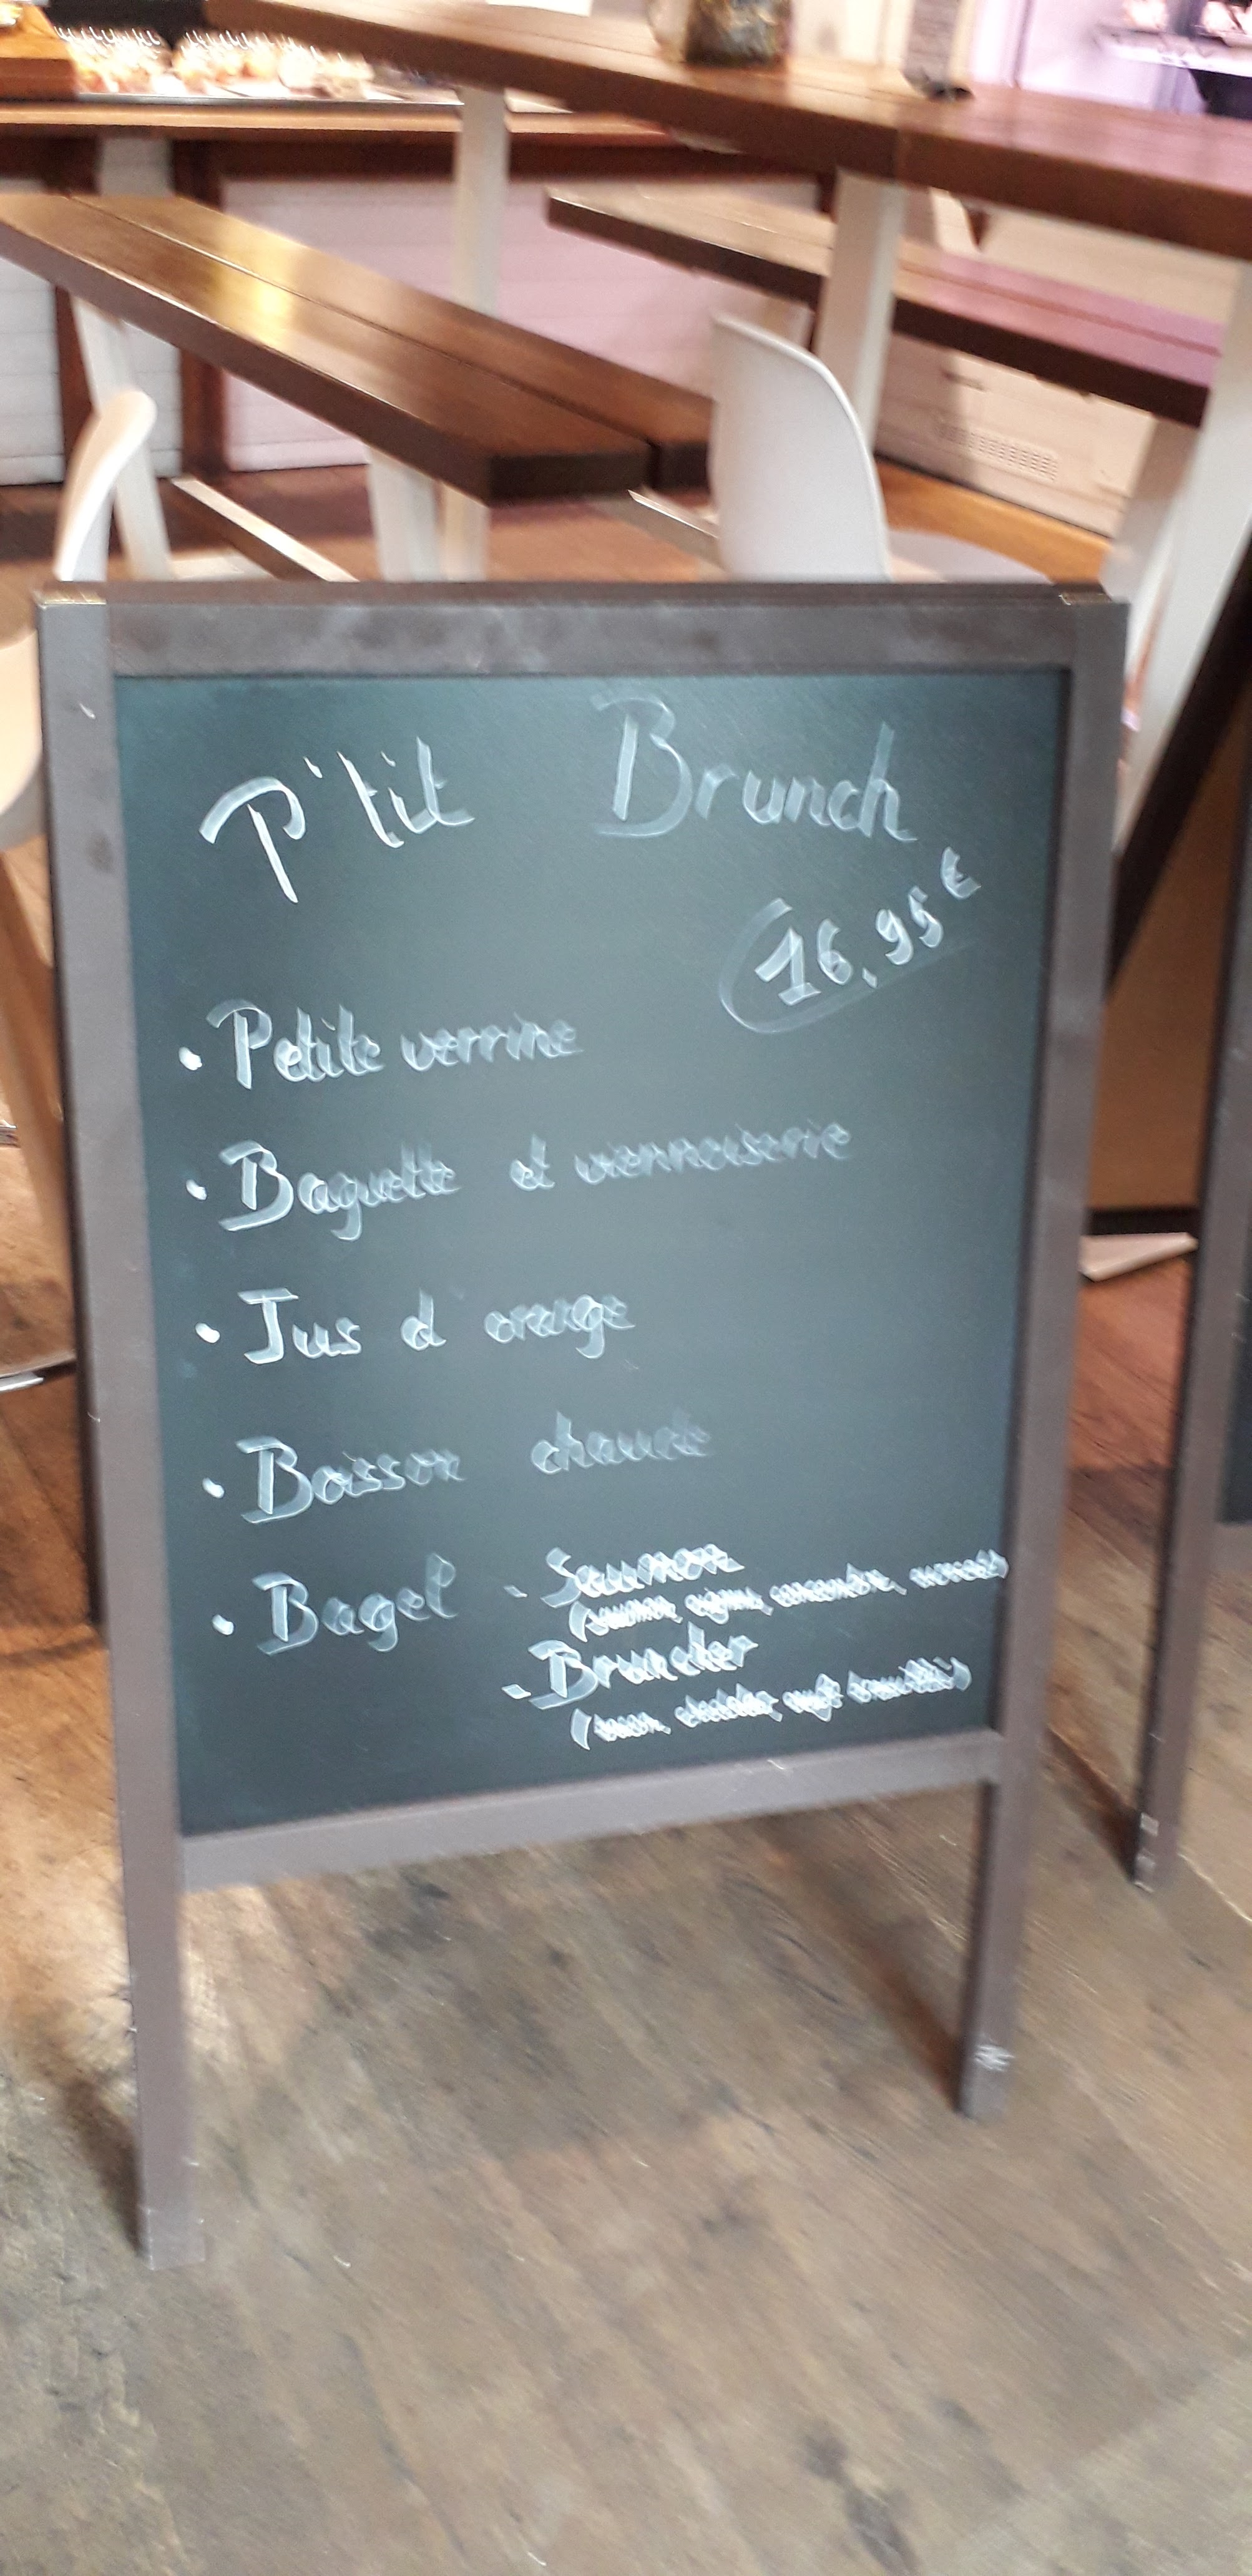 P'tit Brunch
16,95€
• Petite verrine
• Baguette et viennoiserie
• Jus d'orange
• Boisson chaude
• Bagel - Saumon
(saumon, concombre,
- Bruncher
(bacon, cheddar, oeufs brouillés)